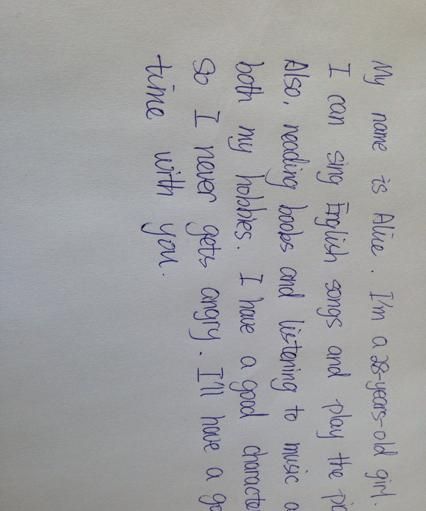 My name is Alice. I'm a 28-years-old girl.
I can sing English songs and play the
Also, reading books and listening to music
both my hobbies. I have a good
So I never gets angry. I'll have a
time with you.